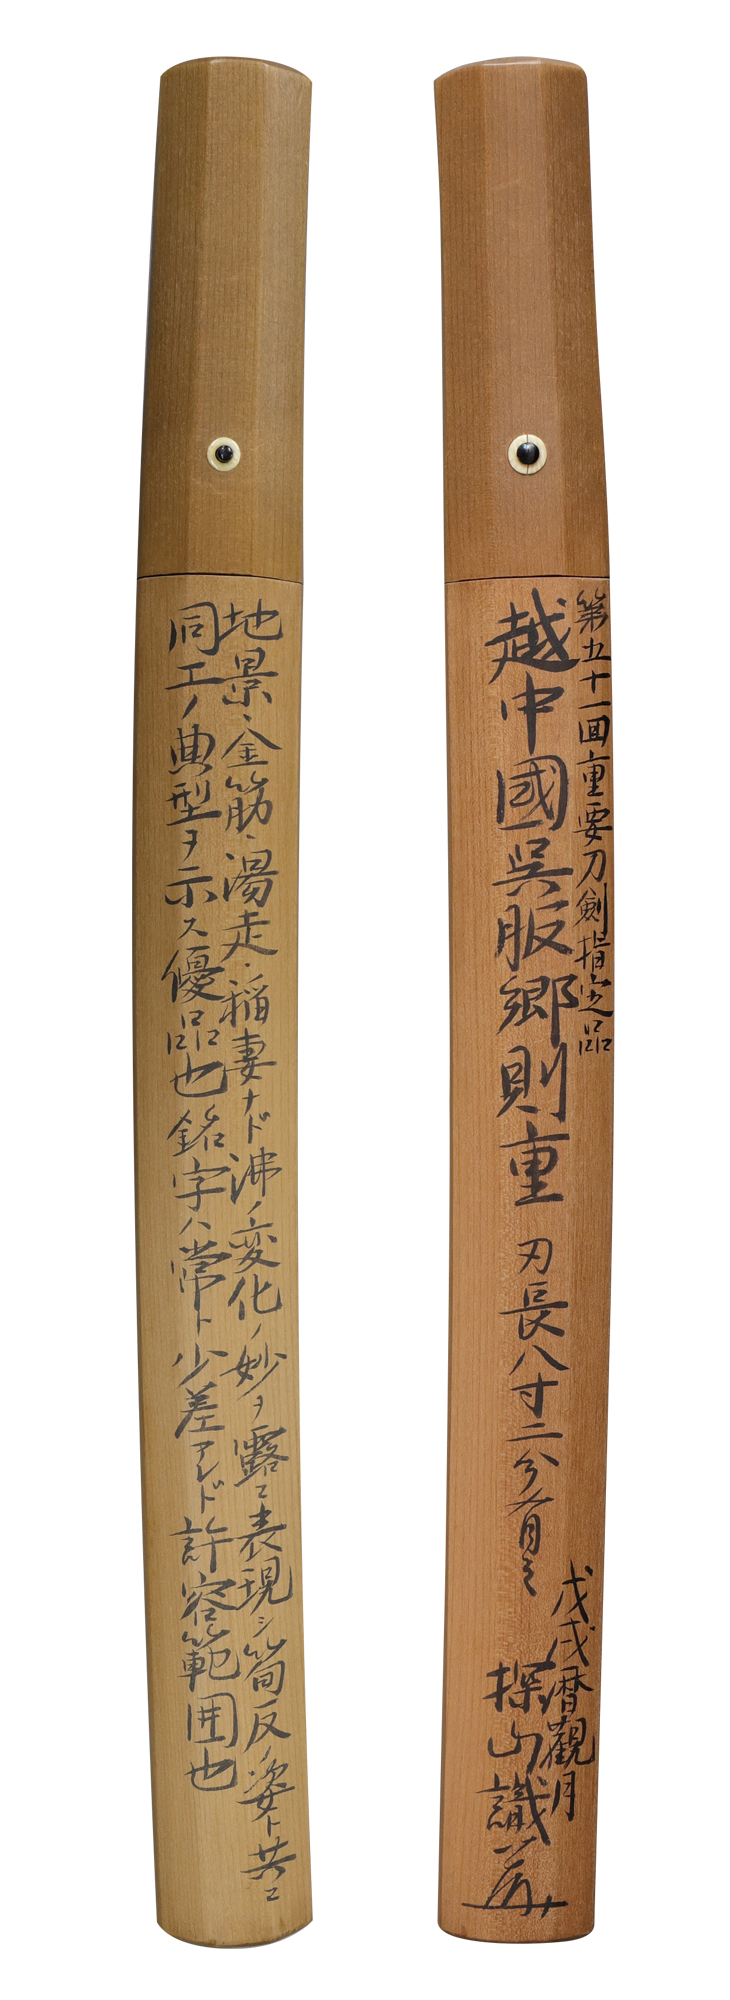 第五十一回重要刀剣指定品
越中國呉服郷則重 刃長八寸二分有之
戊戌暦觀月
探山識
地景、金筋、湯走、稲妻ナド沸ノ変化ノ妙ヲ露ニ表現シ筍反ノ姿ト共ニ
同工ノ典型ヲ示ス優品也銘字ハ常ト少差アレド許容範囲也